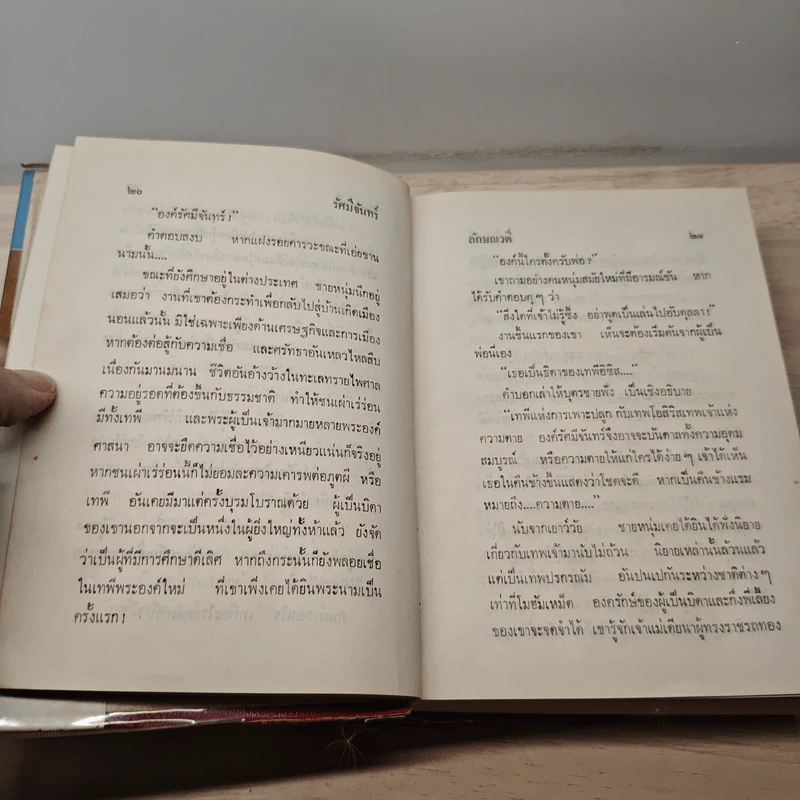 ๒๐ รัศมีจันทร์
"องค์รัศมีจันทร์!"
คำตอบสงบ หากแฝงรอยคารวะขณะที่เอ่ยขาน
นามนั้น....
ขณะที่ยังศึกษาอยู่ในต่างประเทศ ชายหนุ่มนึกอยู่
เสมอว่า งานที่เขาต้องกระทำเพื่อกลับไปสู่บ้านเกิดเมือง
นอนแล้วนั้น มิใช่เฉพาะเพียงด้านเศรษฐกิจและการเมือง
หากต้องต่อสู้กับความเชื่อ และศรัทธาอันเหลวไหลสืบ
เนื่องกันมานมนาน ชีวิตอันอ้างว้างในทะเลทรายไพศาล
ความอยู่รอดที่ต้องขึ้นกับธรรมชาติ ทำให้ชนเผ่าเร่ร่อน
มีทั้งเทพี และพระผู้เป็นเจ้ามากมายหลายพระองค์
ศาสนา อาจจะยึดความเชื่อไว้อย่างเหนียวแน่นก็จริงอยู่
หากชนเผ่าเร่ร่อนนี้ก็ไม่ยอมละความเคารพต่อภูตผี หรือ
เทพี อันเคยมีมาแต่ครั้งบุรมโบราณด้วย ผู้เป็นบิดา
ของเขานอกจากจะเป็นหนึ่งในผู้ยิ่งใหญ่ทั้งห้าแล้ว ยังจัด
ว่าเป็นผู้ที่มีการศึกษาดีเลิศ หากถึงกระนั้นก็ยังพลอยเชื่อ
ในเทพีพระองค์ใหม่ ที่เขาเพิ่งเคยได้ยินพระนามเป็น
ครั้งแรก!
ลักษณวดี ๒๑
"องค์นี้ใครตั้งครับพ่อ?"
เขาถามอย่างคนหนุ่มสมัยใหม่ที่มีอารมณ์ขัน หาก
ได้รับคำตอบดุๆ ว่า
"สิ่งใดที่เจ้าไม่รู้ซึ้ง อย่าพูดเป็นเล่นไปอับดุลลา!"
งานชิ้นแรกของเขา เห็นจะต้องเริ่มต้นจากผู้เป็น
พ่อนี่เอง
"เธอเป็นธิดาของเทพีอิซิส...."
คำบอกเล่าให้บุตรชายฟัง เป็นเชิงอธิบาย
"เทพีแห่งการเพาะปลูก กับเทพโอสิริสเทพเจ้าแห่ง
ความตาย องค์รัศมีจันทร์จึงอาจจะบันดาลทั้งความอุดม
สมบูรณ์ หรือความตายให้แก่ใครได้ง่ายๆ เจ้าได้เห็น
เธอในคืนข้างขึ้นแสดงว่าโชคจะดี หากเป็นคืนข้างแรม
หมายถึง....ความตาย...."
นับจากเยาว์วัย ชายหนุ่มเคยได้ยินได้ฟังนิยาย
เกี่ยวกับเทพเจ้ามานับไม่ถ้วน นิยายเหล่านั้นล้วนแล้ว
แต่เป็นเทพปกรณัม อันปนเปกันระหว่างชาติต่างๆ
เท่าที่โมฮัมเหม็ด องครักษ์ของผู้เป็นบิดาและกึ่งพี่เลี้ยง
ของเขาจะจดจำได้ เขารู้จักเจ้าแม่เดียนาผู้ทรงราชรถทอง